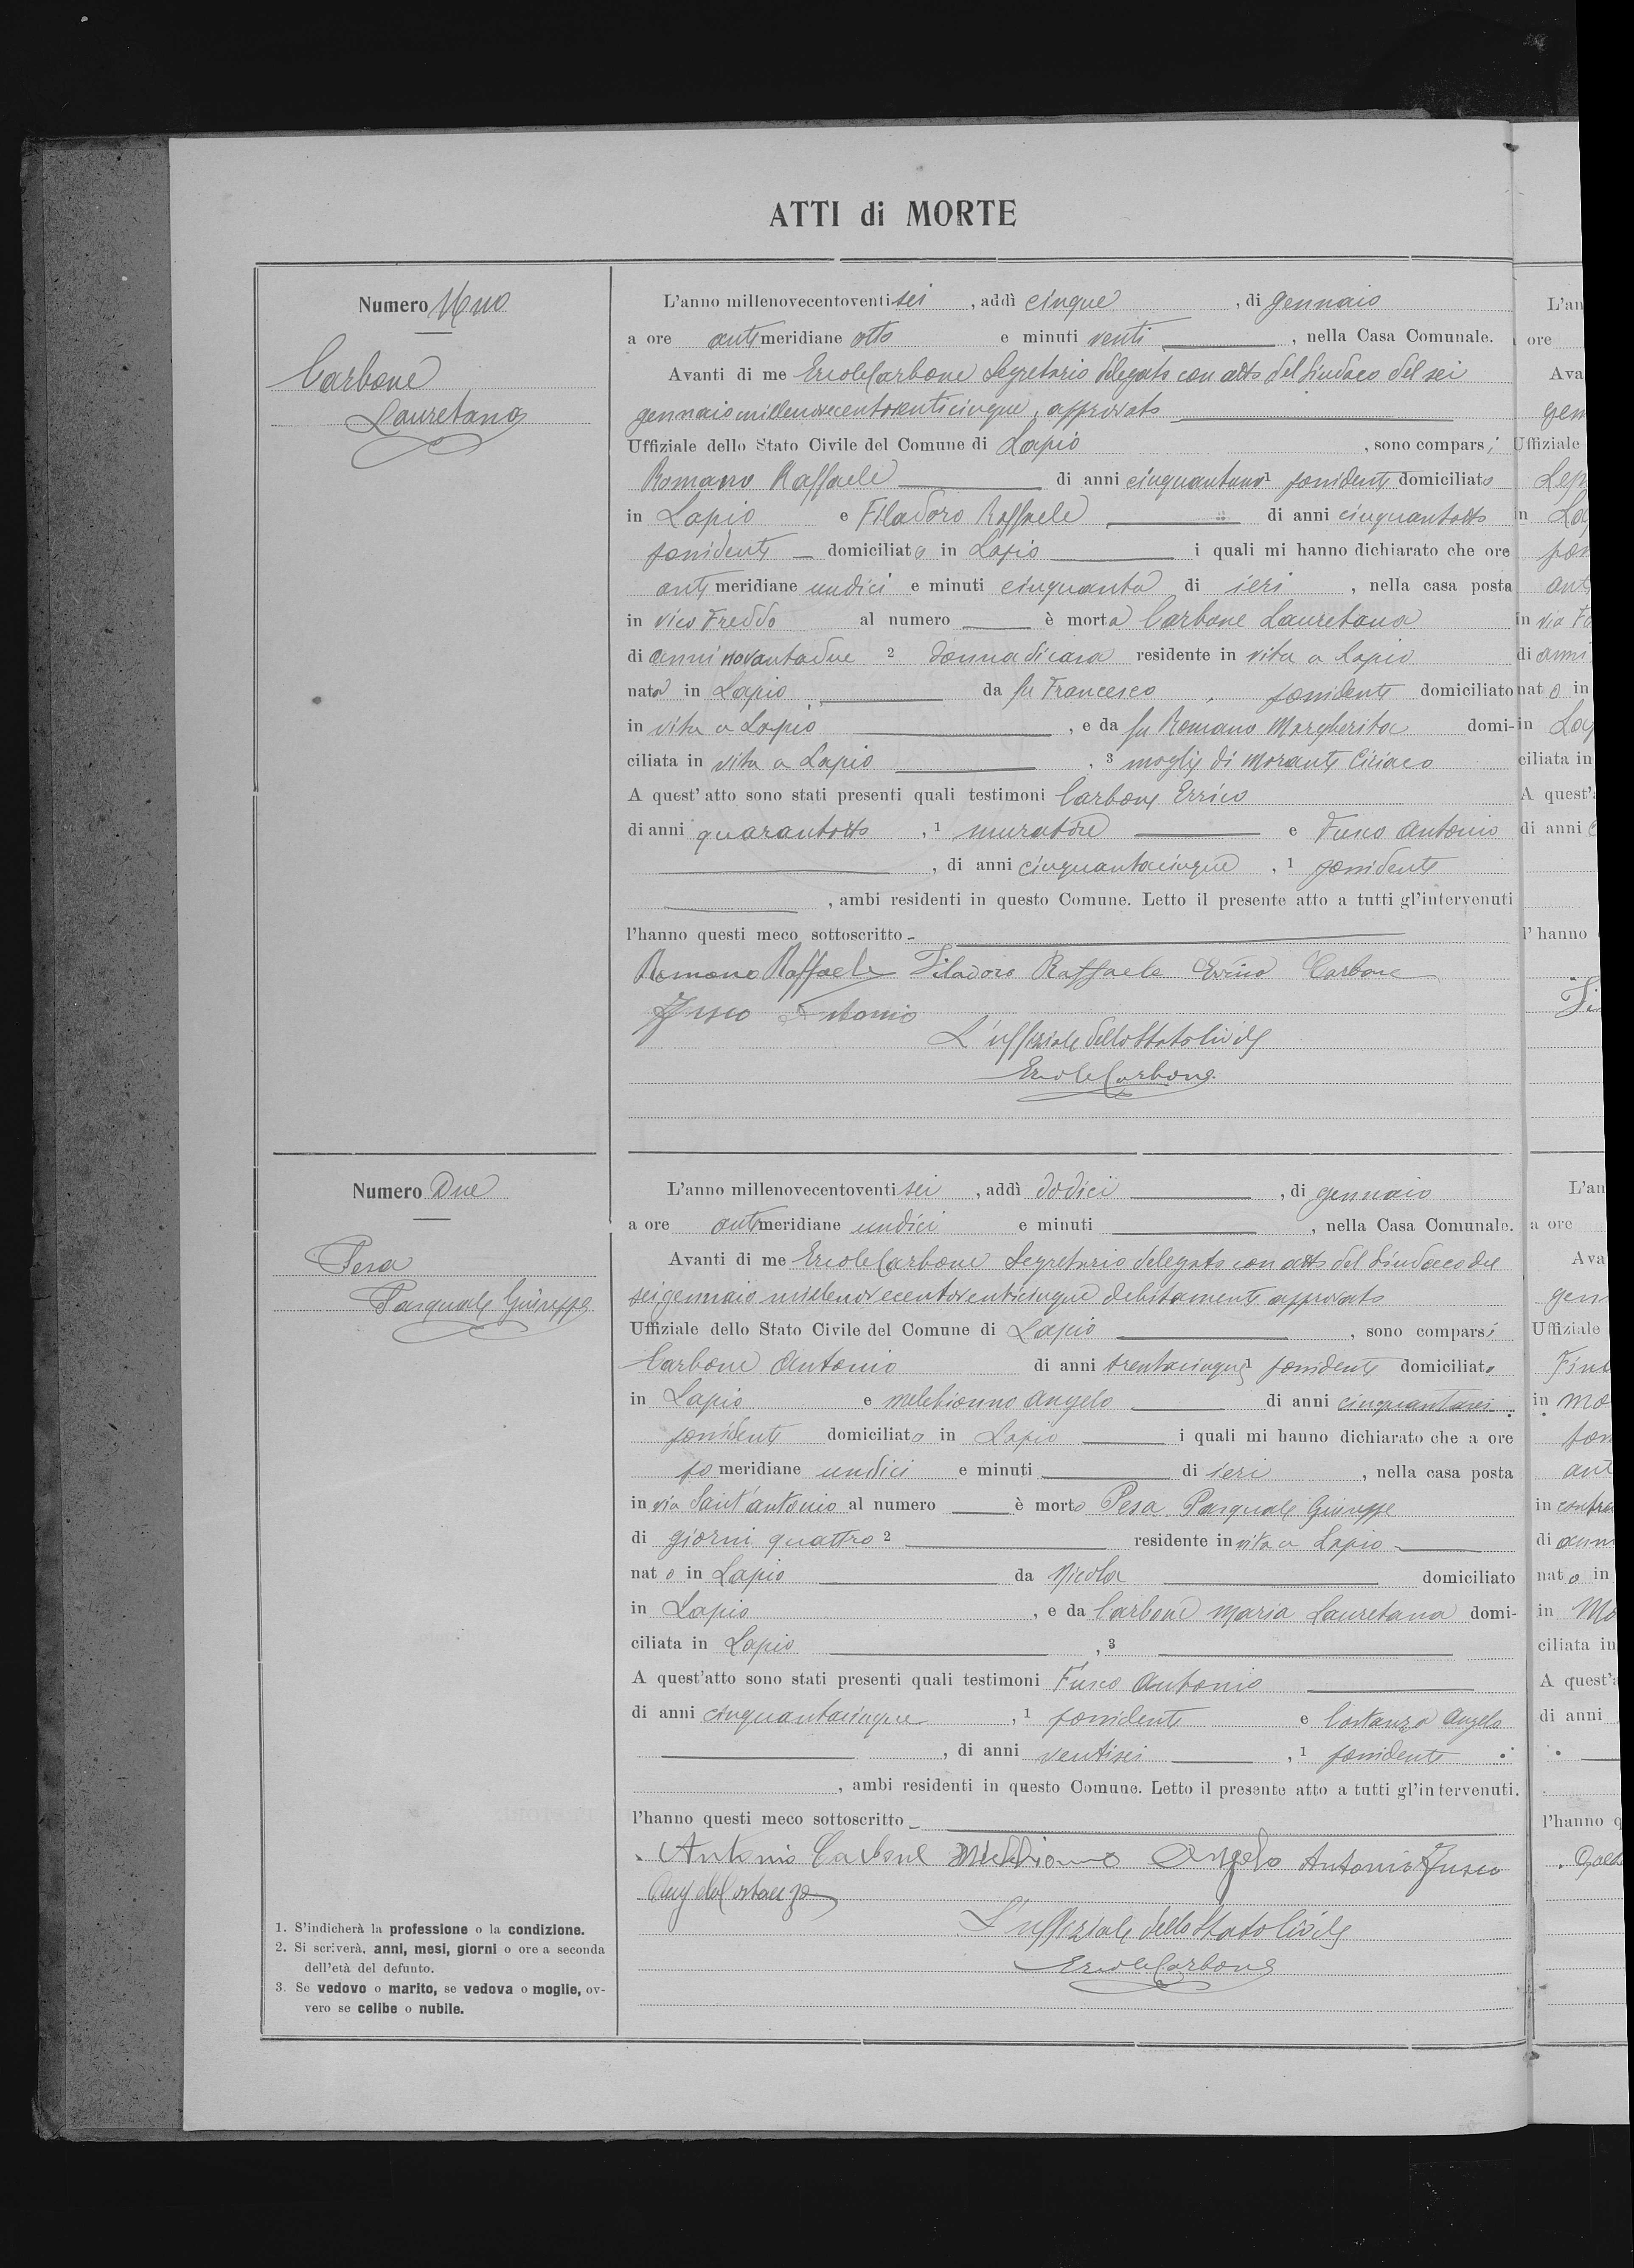 ATTI di MORTE
Numero Uno
Carbone
Lauretana
L'anno millenovecentoventi sei, addì cinque, di gennaio
a ore antimeridiane otto e minuti venti, nella Casa Comunale.
Avanti di me Ercole Carbone Segretario delegato con atto del Sindaco del sei
gennaio millenovecentoventicinque, approvato
Uffiziale dello Stato Civile del Comune di Lapio, sono comparsi
Romano Raffaele di anni cinquantuno 1 possidente domiciliato
in Lapio e Filadoro Raffaele di anni cinquantotto
possidente domiciliato in Lapio i quali mi hanno dichiarato che ore
antimeridiane undici e minuti cinquanta di ieri, nella casa posta
in vico Freddo al numero è morta Carbone Lauretana
di anni novantadue 2 donna di casa residente in vita a Lapio
nata in Lapio da fu Francesco, possidente domiciliato
in vita a Lapio, e da fu Romano Margherita domi-
ciliata in vita a Lapio, 3 moglie di Morante Ciriaco
A quest'atto sono stati presenti quali testimoni Carbone Errico
di anni quarantotto, 1 muratore e Fusco Antonio
, di anni cinquantacinque, 1 possidente
, ambi residenti in questo Comune. Letto il presente atto a tutti gl'intervenuti
l'hanno questi meco sottoscritto
Romano Raffaele Filadoro Raffaele Errico Carbone
Fusco Antonio
L'uffiziale dello Stato Civile
Ercole Carbone
Numero Due
Pesa
Pasquale Giuseppe
L'anno millenovecentoventi sei, addì dodici, di gennaio
a ore antimeridiane undici e minuti, nella Casa Comunale.
Avanti di me Ercole Carbone Segretario delegato con atto del Sindaco del
sei gennaio millenovecentoventicinque debitamente approvato
Uffiziale dello Stato Civile del Comune di Lapio, sono comparsi
Carbone Antonio di anni trentacinque 1 possidente domiciliato
in Lapio e Melchionno Angelo di anni cinquantasei
possidente domiciliato in Lapio i quali mi hanno dichiarato che a ore
pomeridiane undici e minuti di ieri, nella casa posta
in via Sant'Antonio al numero è morto Pesa Pasquale Giuseppe
di giorni quattro 2 residente in vita a Lapio
nato in Lapio da Nicola domiciliato
in Lapio, e da Carbone Maria Lauretana domi-
ciliata in Lapio, 3
A quest'atto sono stati presenti quali testimoni Fusco Antonio
di anni cinquantacinque, 1 possidente e Costanza Angelo
, di anni ventisei, 1 possidente
, ambi residenti in questo Comune. Letto il presente atto a tutti gl'intervenuti.
l'hanno questi meco sottoscritto
Antonio Carbone Melchionno Angelo Antonio Fusco
Angelo Costanza
L'uffiziale dello Stato Civile
Ercole Carbone
1. S'indicherà la professione o la condizione.
2. Si scriverà, anni, mesi, giorni o ore a seconda
dell'età del defunto.
3. Se vedovo o marito, se vedova o moglie, ov-
vero se celibe o nubile.